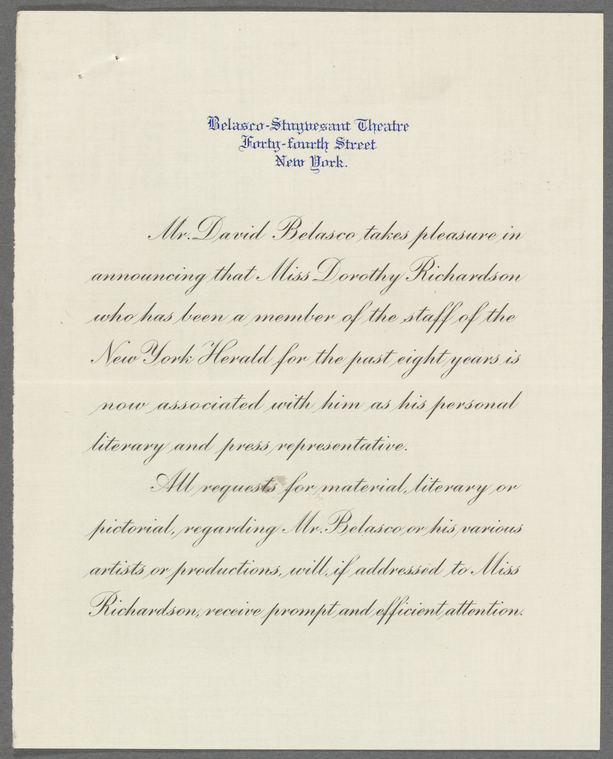 Belasco-Stuyvesant Theatre
Forty-fourth Street
New York.
Mr. David Belasco takes pleasure in
announcing that Miss Dorothy Richardson
who has been a member of the staff of the
New York Herald for the past eight years is
now associated with him as his personal
literary and press representative.
All requests for material, literary or
pictorial, regarding Mr. Belasco, or his various
artists or productions, will, if addressed to Miss
Richardson, receive prompt and efficient attention.